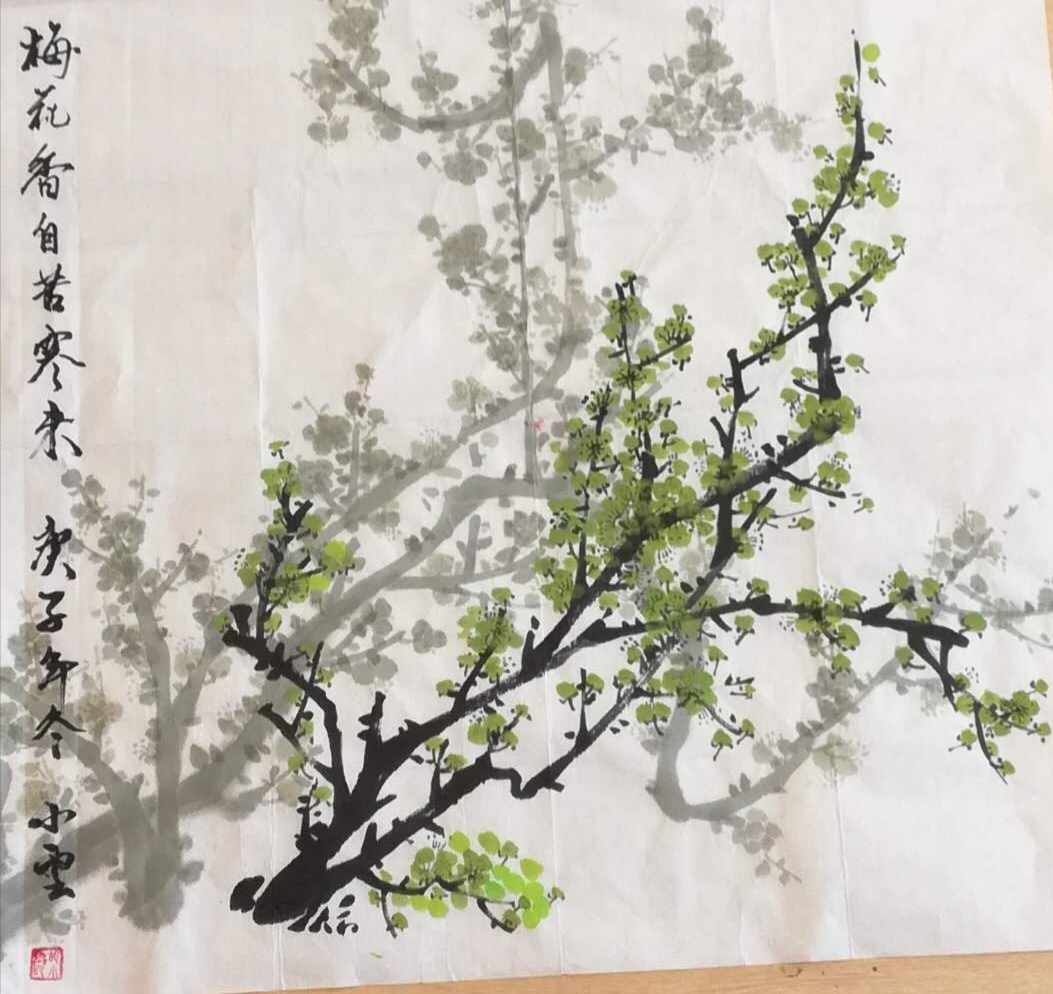 梅花香自苦寒来 庚子年冬 小雲